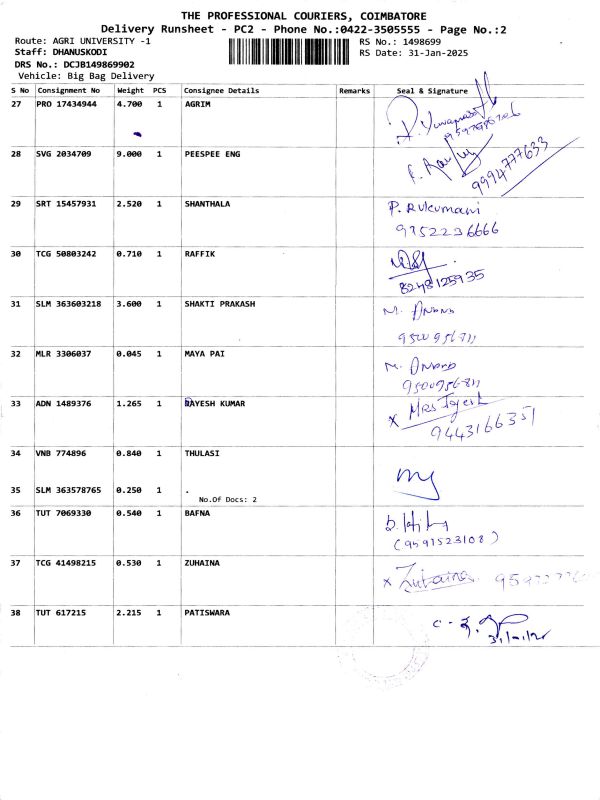 THE PROFESSIONAL COURIERS, COIMBATORE
Delivery Runsheet - PC2 - Phone No.:0422-3505555 - Page No.:2
Route: AGRI UNIVERSITY -1
RS No.: 1498699
Staff: DHANUSKODI
RS Date: 31-Jan-2025
DRS No.: DCJB149869902
Vehicle: Big Bag Delivery
S No Consignment No Weight PCS Consignee Details Remarks Seal & Signature
27 PRO 17434944 4.700 1 AGRIM
28 SVG 2034709 9.000 1 PEESPEE ENG
9994777633
29 SRT 15457931 2.520 1 SHANTHALA P. Rukumani
9352236666
30 TCG 50803242 0.710 1 RAFFIK
8248125935
31 SLM 363603218 3.600 1 SHAKTI PRAKASH M. Anand
9500956811
32 MLR 3306037 0.045 1 MAYA PAI M. Anand
9500956811
33 ADN 1489376 1.265 1 RAYESH KUMAR x Mrs Jayesh
9443166351
34 VNB 774896 0.840 1 THULASI
35 SLM 363578765 0.250 1 .
No.Of Docs: 2
36 TUT 7069330 0.540 1 BAFNA
(9591523108)
37 TCG 41498215 0.530 1 ZUHAINA x Zuhaina
38 TUT 617215 2.215 1 PATISWARA